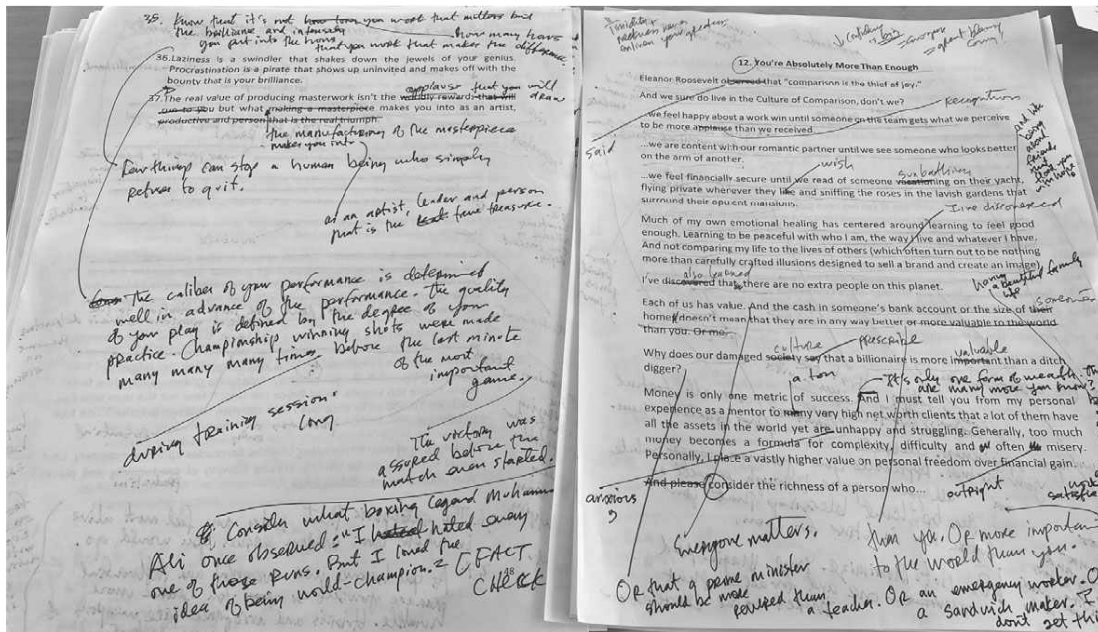 35. Know that it's not how long you work that matters but
the brilliance and intensity how many hours
you put into the hours
that you work that makes the difference.
36. Laziness is a swindler that shakes down the jewels of your genius.
Procrastination is a pirate that shows up uninvited and makes off with the
bounty that is your brilliance.
applause that you will
37. The real value of producing masterwork isn't the worldly rewards that will draw
you but what making a masterpiece makes you into as an artist,
productive and person that is the real triumph.
the manufacturing of the masterpiece
makes you into
Few things can stop a human being who simply
refuses to quit.
as an artist, leader and person
that is the true treasure.
The caliber of your performance is determined
well in advance of the performance. The quality
of your play is defined by the degree of your
practice. Championship winning shots were made
many many many times before the last minute
of the most
important
game.
during training session.
long
The victory was
assured before the
match even started.
Consider what boxing legend Muhammad
Ali once observed: "I hated every
one of those runs. But I loved the
idea of being world-champion." [FACT
CHECK
18
12. You're Absolutely More Than Enough
Eleanor Roosevelt observed that "comparison is the thief of joy."
And we sure do live in the Culture of Comparison, don't we?
recognition
...we feel happy about a work win until someone on the team gets what we perceive
to be more applause than we received.
said
...we are content with our romantic partner until we see someone who looks better
on the arm of another.
wish
sunbathing
...we feel financially secure until we read of someone vacationing on their yacht,
flying private whenever they like and sniffing the roses in the lavish gardens that
surround their opulent mansions.
I've discovered
Much of my own emotional healing has centered around learning to feel good
enough. Learning to be peaceful with who I am, the way I live and whatever I have.
And not comparing my life to the lives of others (which often turn out to be nothing
more than carefully crafted illusions designed to sell a brand and create an image)
also learned
I've discovered that there are no extra people on this planet.
having
a beautiful family
life
someone
Each of us has value. And the cash in someone's bank account or the size of their
home doesn't mean that they are in any way better or more valuable to the world
than you. Or me.
culture prescribe
valuable
Why does our damaged society say that a billionaire is more important than a ditch
digger?
a ton
It's only one form of wealth.
are many more you know?
Money is only one metric of success. And I must tell you from my personal
experience as a mentor to many very high net worth clients that a lot of them have
all the assets in the world yet are unhappy and struggling. Generally, too much
money becomes a formula for complexity difficulty and often misery.
Personally, I place a vastly higher value on personal freedom over financial gain.
And please consider the richness of a person who...
anxious
outright
Everyone matters.
than you. Or more important
to the world than you.
Or that a prime minister
should be more
revered than
a teacher. Or an emergency worker. Or
a sandwich maker. I
don't get this